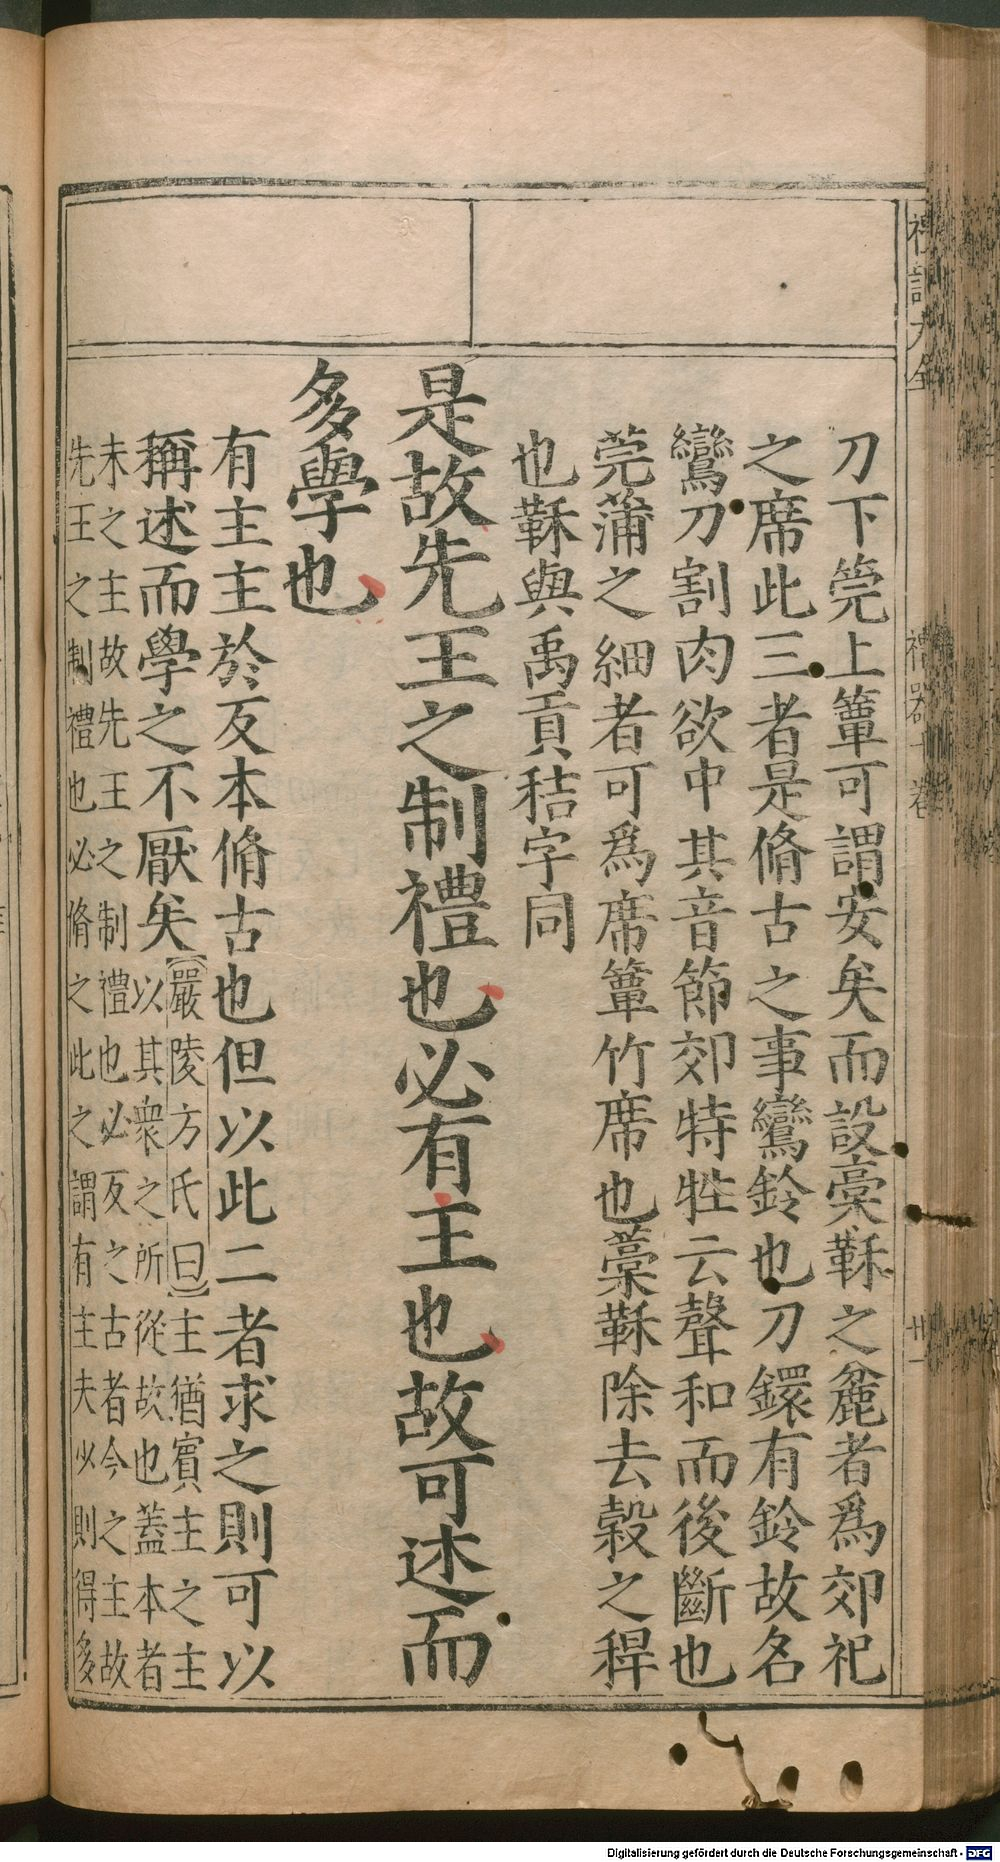 刀下筦上簟可謂安矣而設稾鞂之麄者爲郊祀
之席此三者是脩古之事鸞鈴也刀鐶有鈴故名
鸞刀割肉欲中其音節郊特牲云聲和而後斷也
莞蒲之細者可爲席簟竹席也藁鞂除去榖之稈
也鞂與禹貢秸字同
是故先王之制禮也必有主也故可述而
多學也
有主主於反本脩古也但以此二者求之則可以
稱述而學之不厭矣
嚴陵方氏曰主猶賓主之主
以其衆之所從故也蓋本者
末之主故先王之制禮也必反之古者今之主故
先王之制禮也必脩之此之謂有主夫少則得多
禮記大全
禮器十卷
廿一
Digitalisierung gefördert durch die Deutsche Forschungsgemeinschaft - DFG